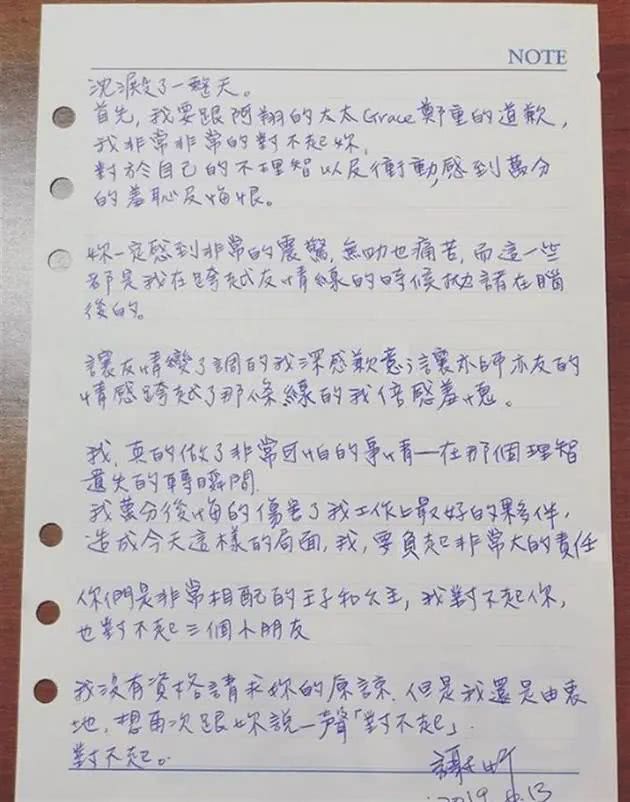 NOTE
沈澱了一整天。
首先,我要跟阿翔的太太Grace鄭重的道歉,
我非常非常的對不起妳,
對於自己的不理智以及衝動,感到萬分
的羞恥及悔恨。
妳一定感到非常的震驚,無助也痛苦,而這一些
都是我在跨越友情線的時候拋諸在腦
後的。
讓友情變了調的我深感歉意;讓亦師亦友的
情感跨越了那條線的我倍感羞愧。
我,真的做了非常可怕的事情—在那個理智
遺失的轉瞬間.
我萬分後悔的傷害了我工作上最好的夥伴,
造成今天這樣的局面,我,要負起非常大的責任
你們是非常相配的王子和公主,我對不起你,
也對不起三個小朋友
我沒有資格請求妳的原諒.但是我還是由衷
地,想再次跟妳說一聲「對不起」.
對不起。
謝忻
2019.
13